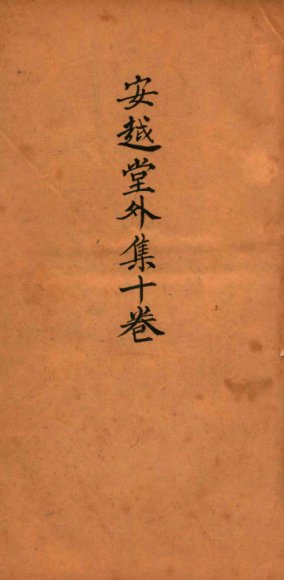 安越堂外集十卷